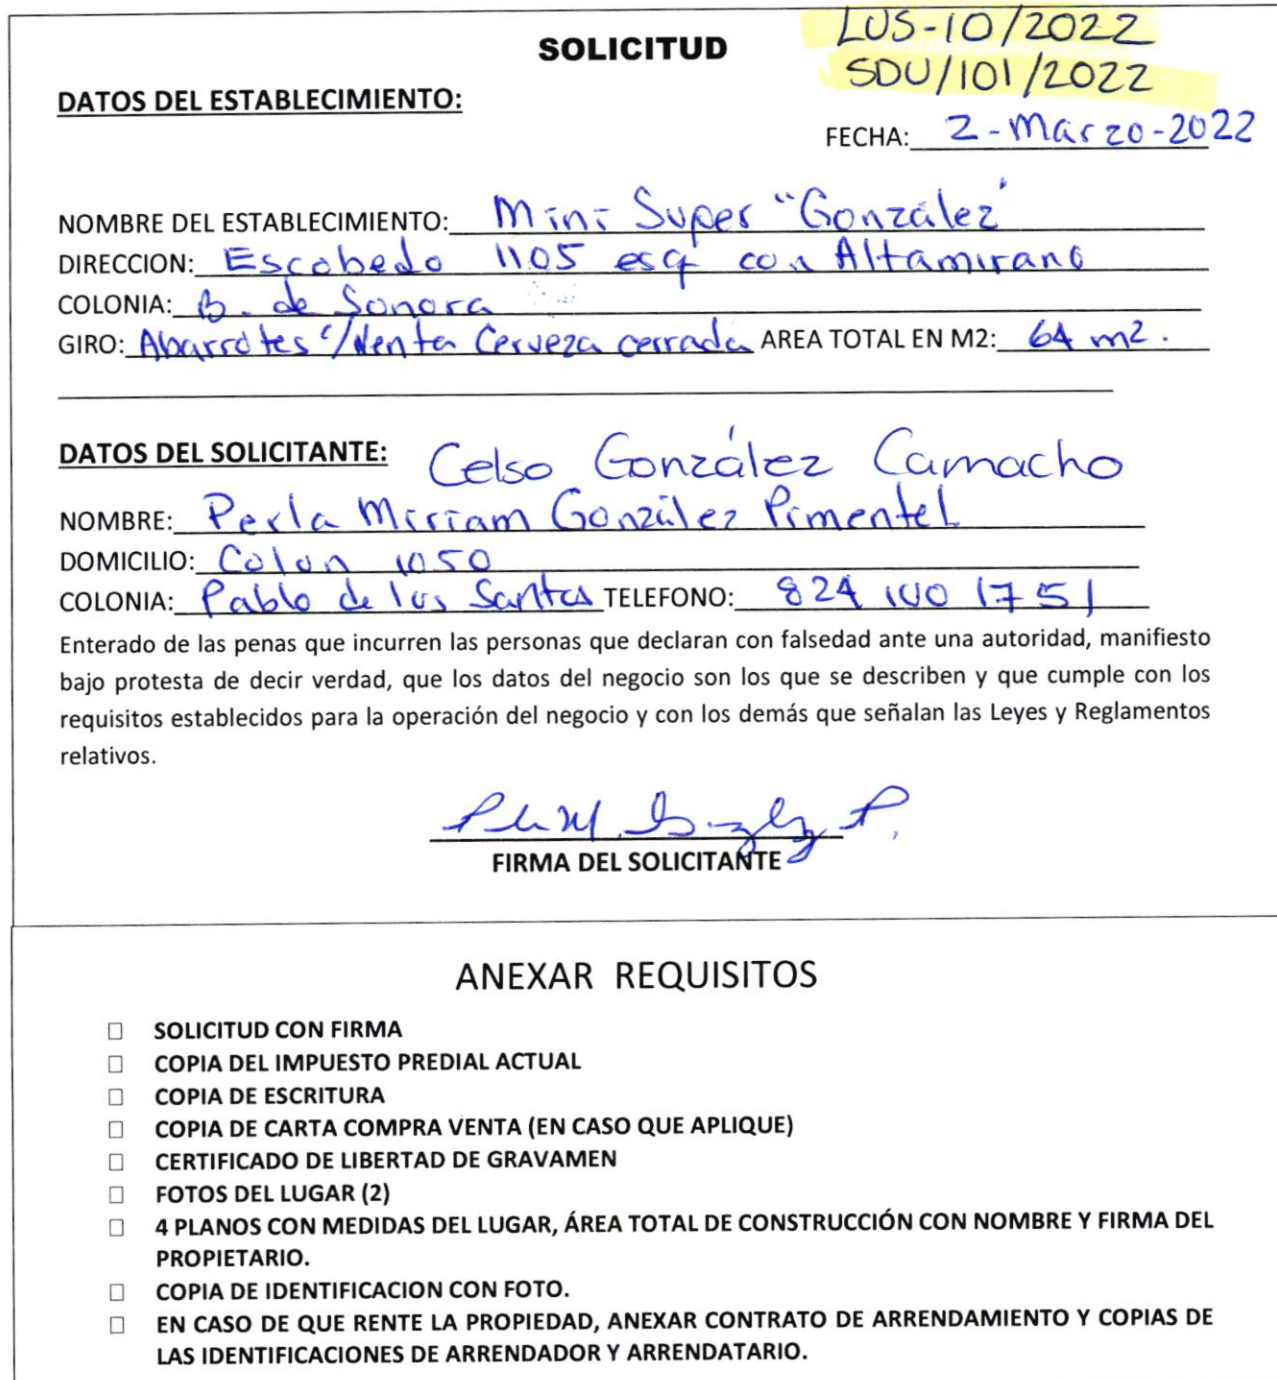 SOLICITUD
LUS-10/2022
SDU/101/2022
DATOS DEL ESTABLECIMIENTO:
FECHA: 2-Marzo-2022
NOMBRE DEL ESTABLECIMIENTO: Mini Super "González"
DIRECCION: Escobedo 1105 esq con Altamirano
COLONIA: B. de Sonora
GIRO: Abarrotes c/Venta Cerveza cerrada AREA TOTAL EN M2: 64 m2.
DATOS DEL SOLICITANTE: Celso González Camacho
NOMBRE: Perla Miriam González Pimentel
DOMICILIO: Colon 1050
COLONIA: Pablo de los Santos TELEFONO: 824 100 1751
Enterado de las penas que incurren las personas que declaran con falsedad ante una autoridad, manifiesto
bajo protesta de decir verdad, que los datos del negocio son los que se describen y que cumple con los
requisitos establecidos para la operación del negocio y con los demás que señalan las Leyes y Reglamentos
relativos.
FIRMA DEL SOLICITANTE
ANEXAR REQUISITOS
SOLICITUD CON FIRMA
COPIA DEL IMPUESTO PREDIAL ACTUAL
COPIA DE ESCRITURA
COPIA DE CARTA COMPRA VENTA (EN CASO QUE APLIQUE)
CERTIFICADO DE LIBERTAD DE GRAVAMEN
FOTOS DEL LUGAR (2)
4 PLANOS CON MEDIDAS DEL LUGAR, ÁREA TOTAL DE CONSTRUCCIÓN CON NOMBRE Y FIRMA DEL
PROPIETARIO.
COPIA DE IDENTIFICACION CON FOTO.
EN CASO DE QUE RENTE LA PROPIEDAD, ANEXAR CONTRATO DE ARRENDAMIENTO Y COPIAS DE
LAS IDENTIFICACIONES DE ARRENDADOR Y ARRENDATARIO.